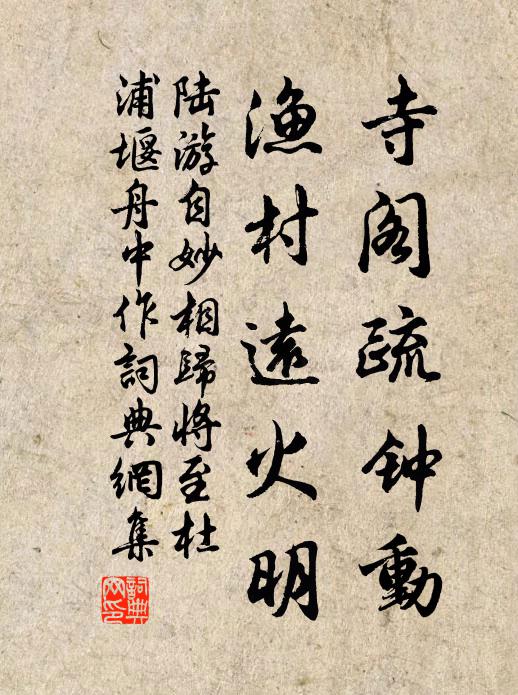 寺阁疏钟動
渔村遠火明
陆游自妙相歸将至杜
浦堰舟中作詞典網集
詞典